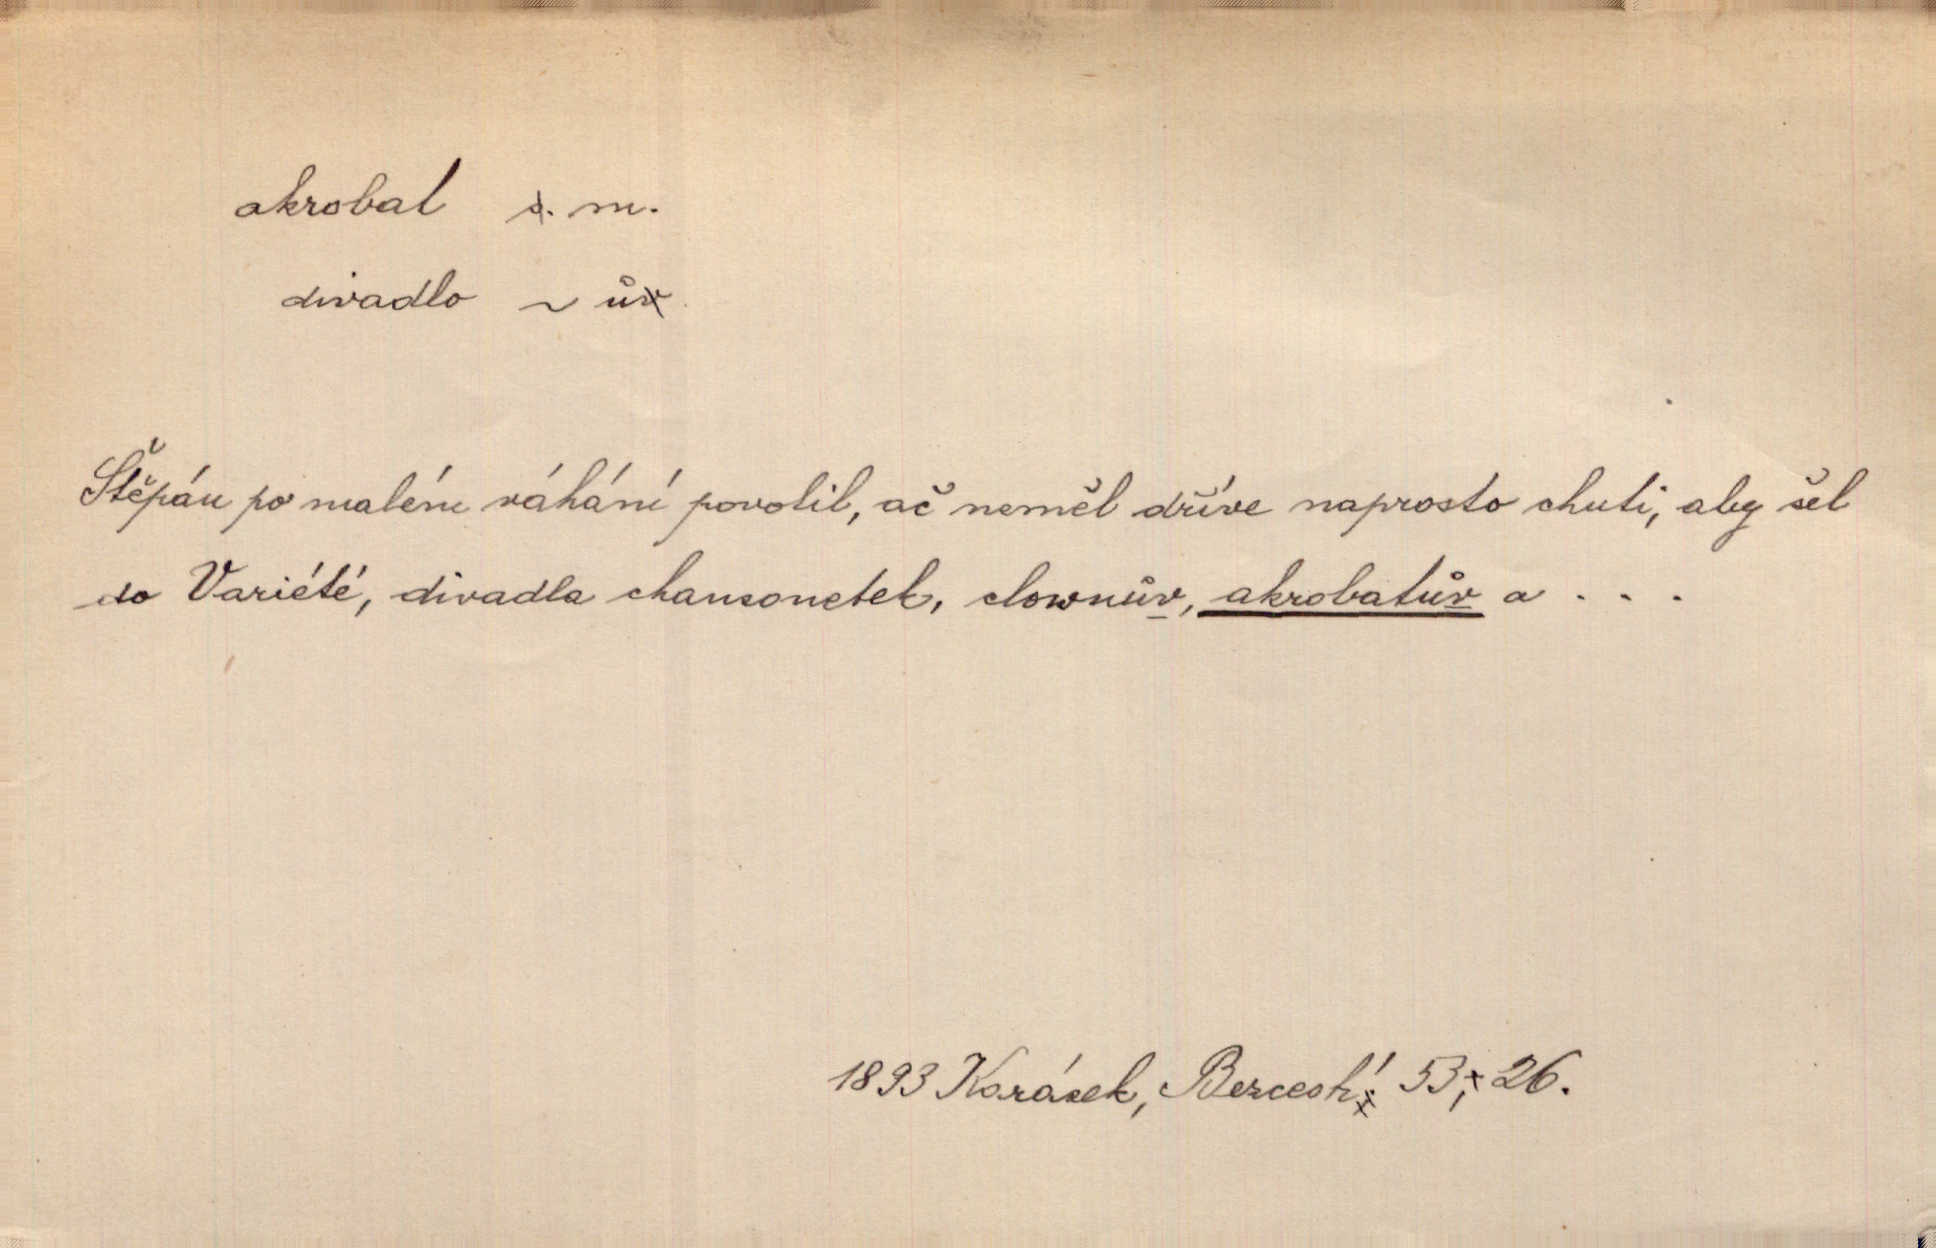 akrobat s. m.
divadlo ~ ův
Štěpán po malém váhání povolil, ač neměl dříve naprosto chuti, aby šel
do Variété, divadla chansonetek, clownův, akrobatův a . . .
1893 Karásek, Bezcestí 53, 26.